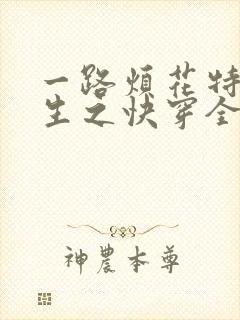 一路烦花特
生之快穿全
神農本尊